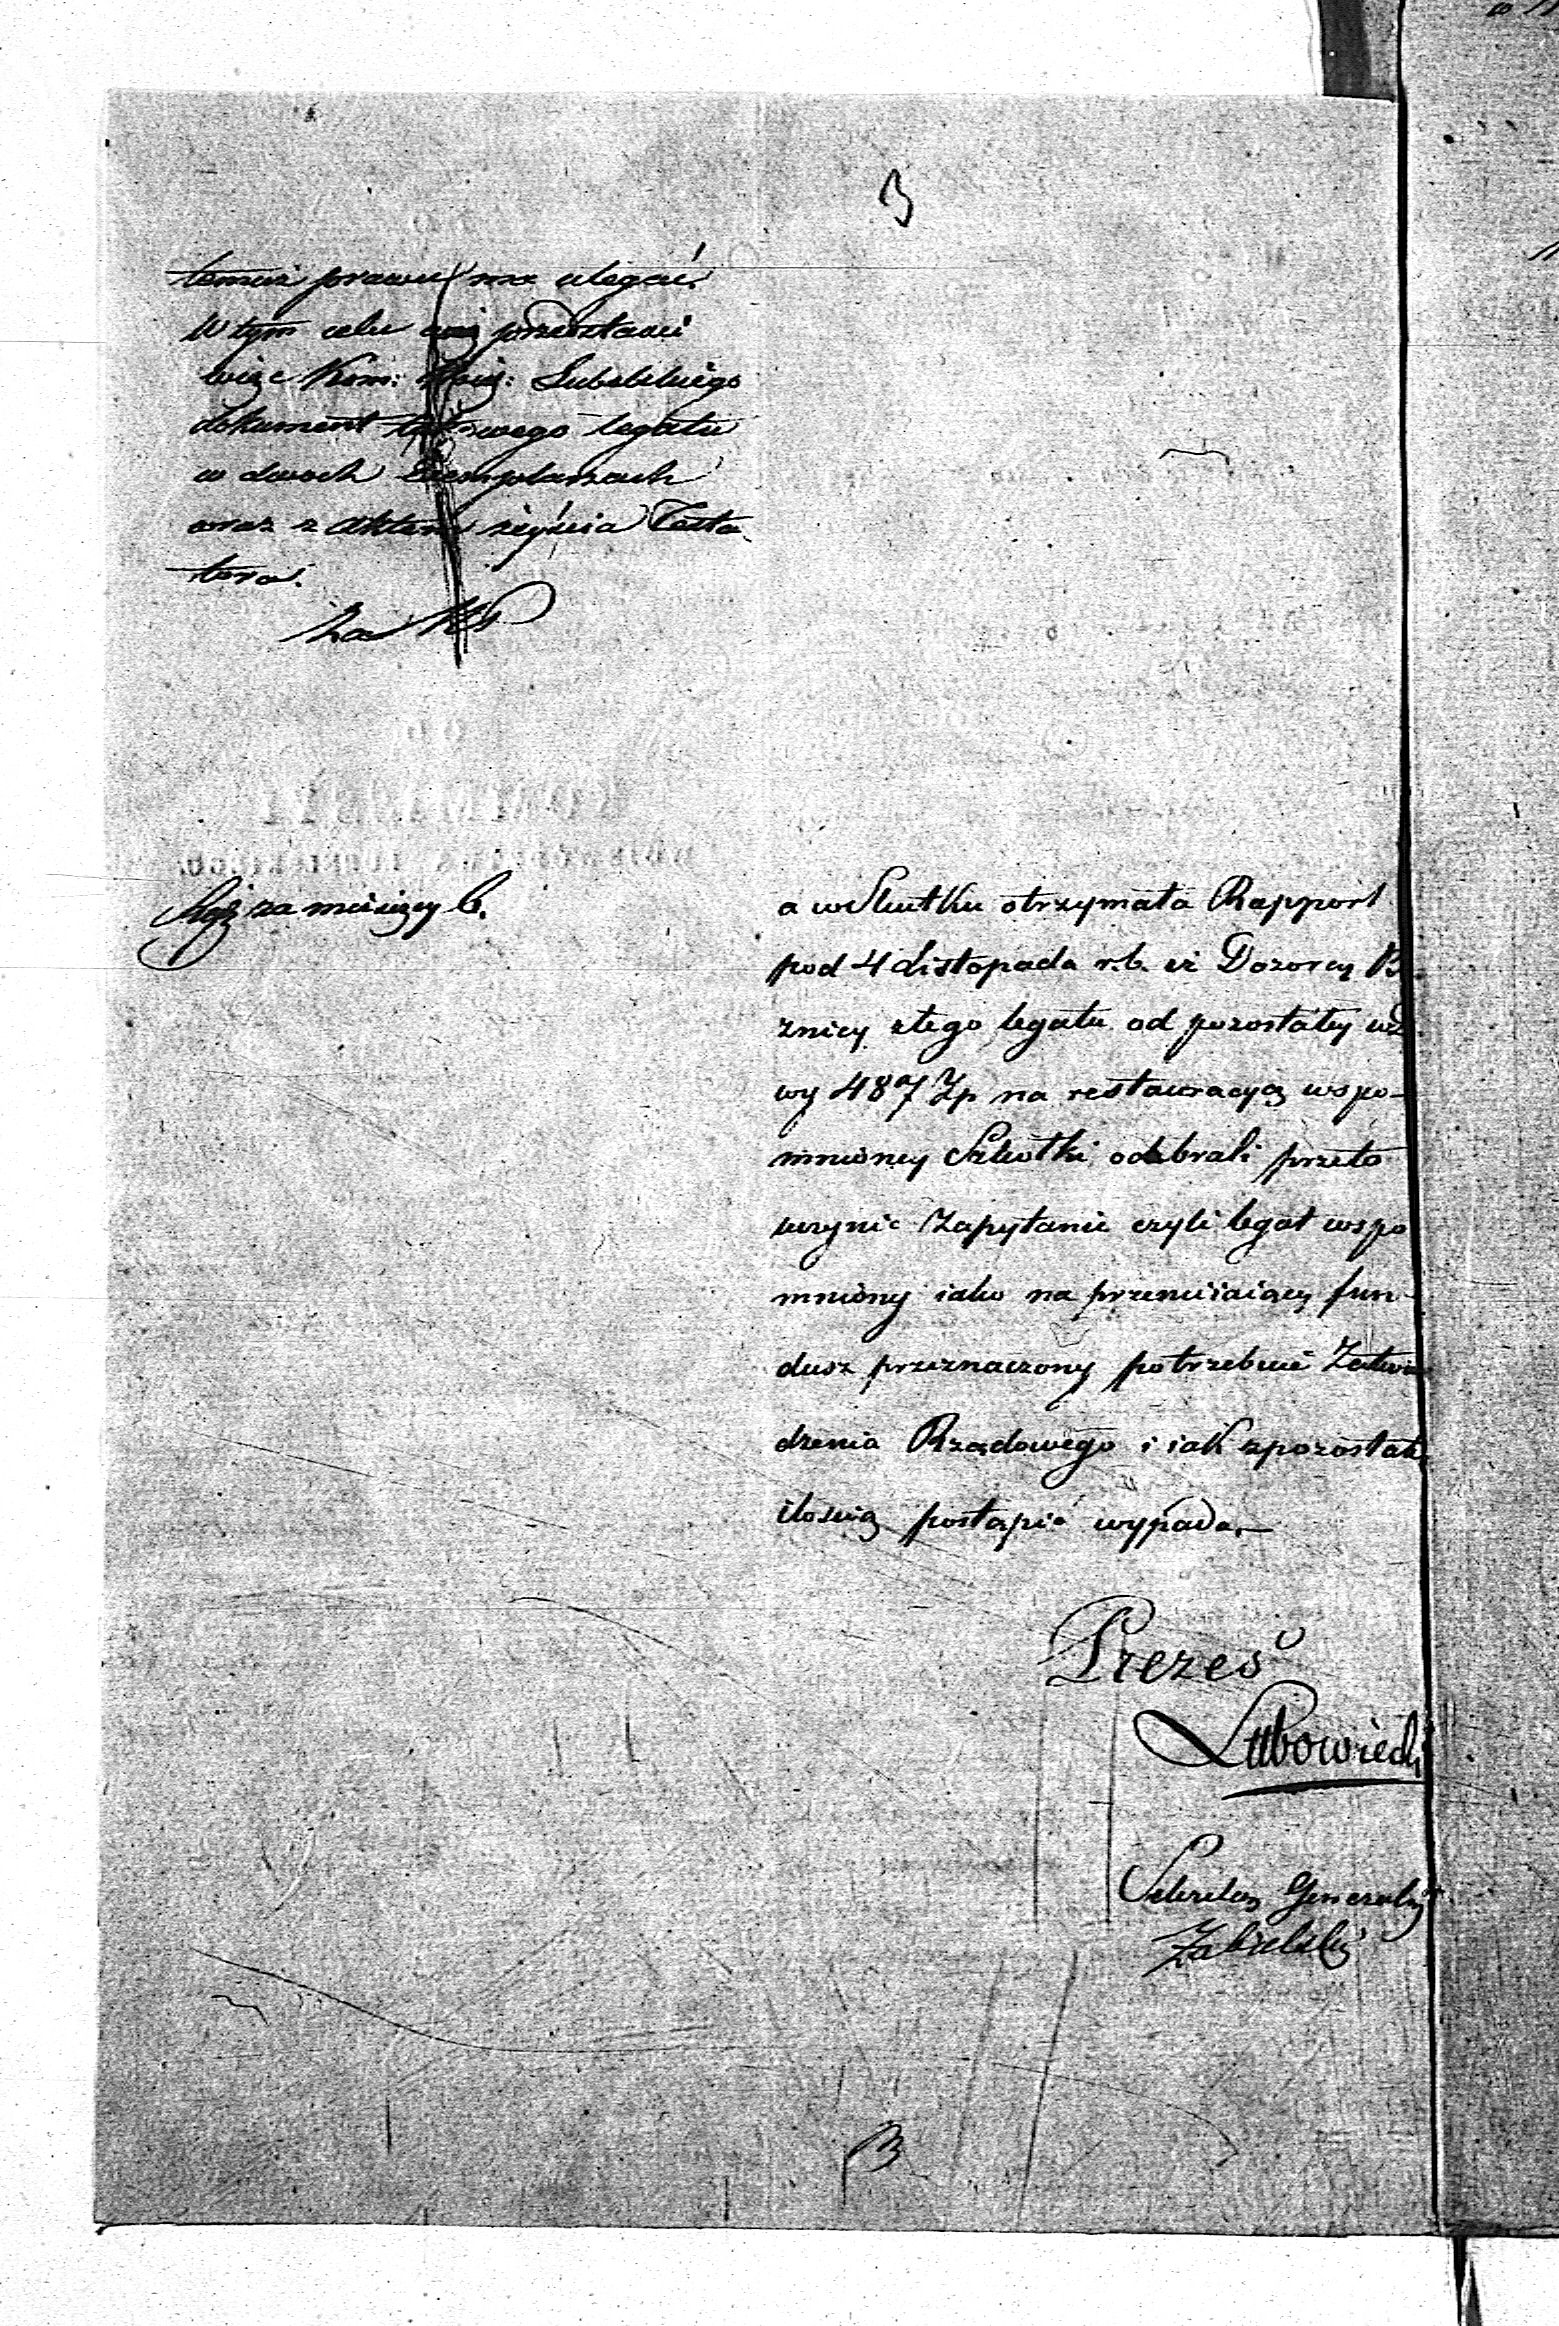 temuż prawu ma ulegać.
W tym celu przedstawi
więc Kom: Woj: Lubelskiego
dokument takowego legatu
w dwoch Exemplarzach
wraz z aktem zeyścia Testa
tora.
Za
a w Skutku otrzymała Rapport
pod 4 Listopada r.b. iż Dozorcy B
znicy z tego legatu od pozostałey wd
wy 487 Zp na restauracyą wspo-
mnioney Szkołki odebrali przeto
uczynić Zapytanie czyli legat wspo
mniony iako na przemiiaiący fun-
dusz przeznaczony potrzebuie Zatwie
dzenia Rządowego i iak z pozostałą
ilością postąpić wypada.—
Prezes
Lubowiecki
Sekretarz Generalny
Zabielski